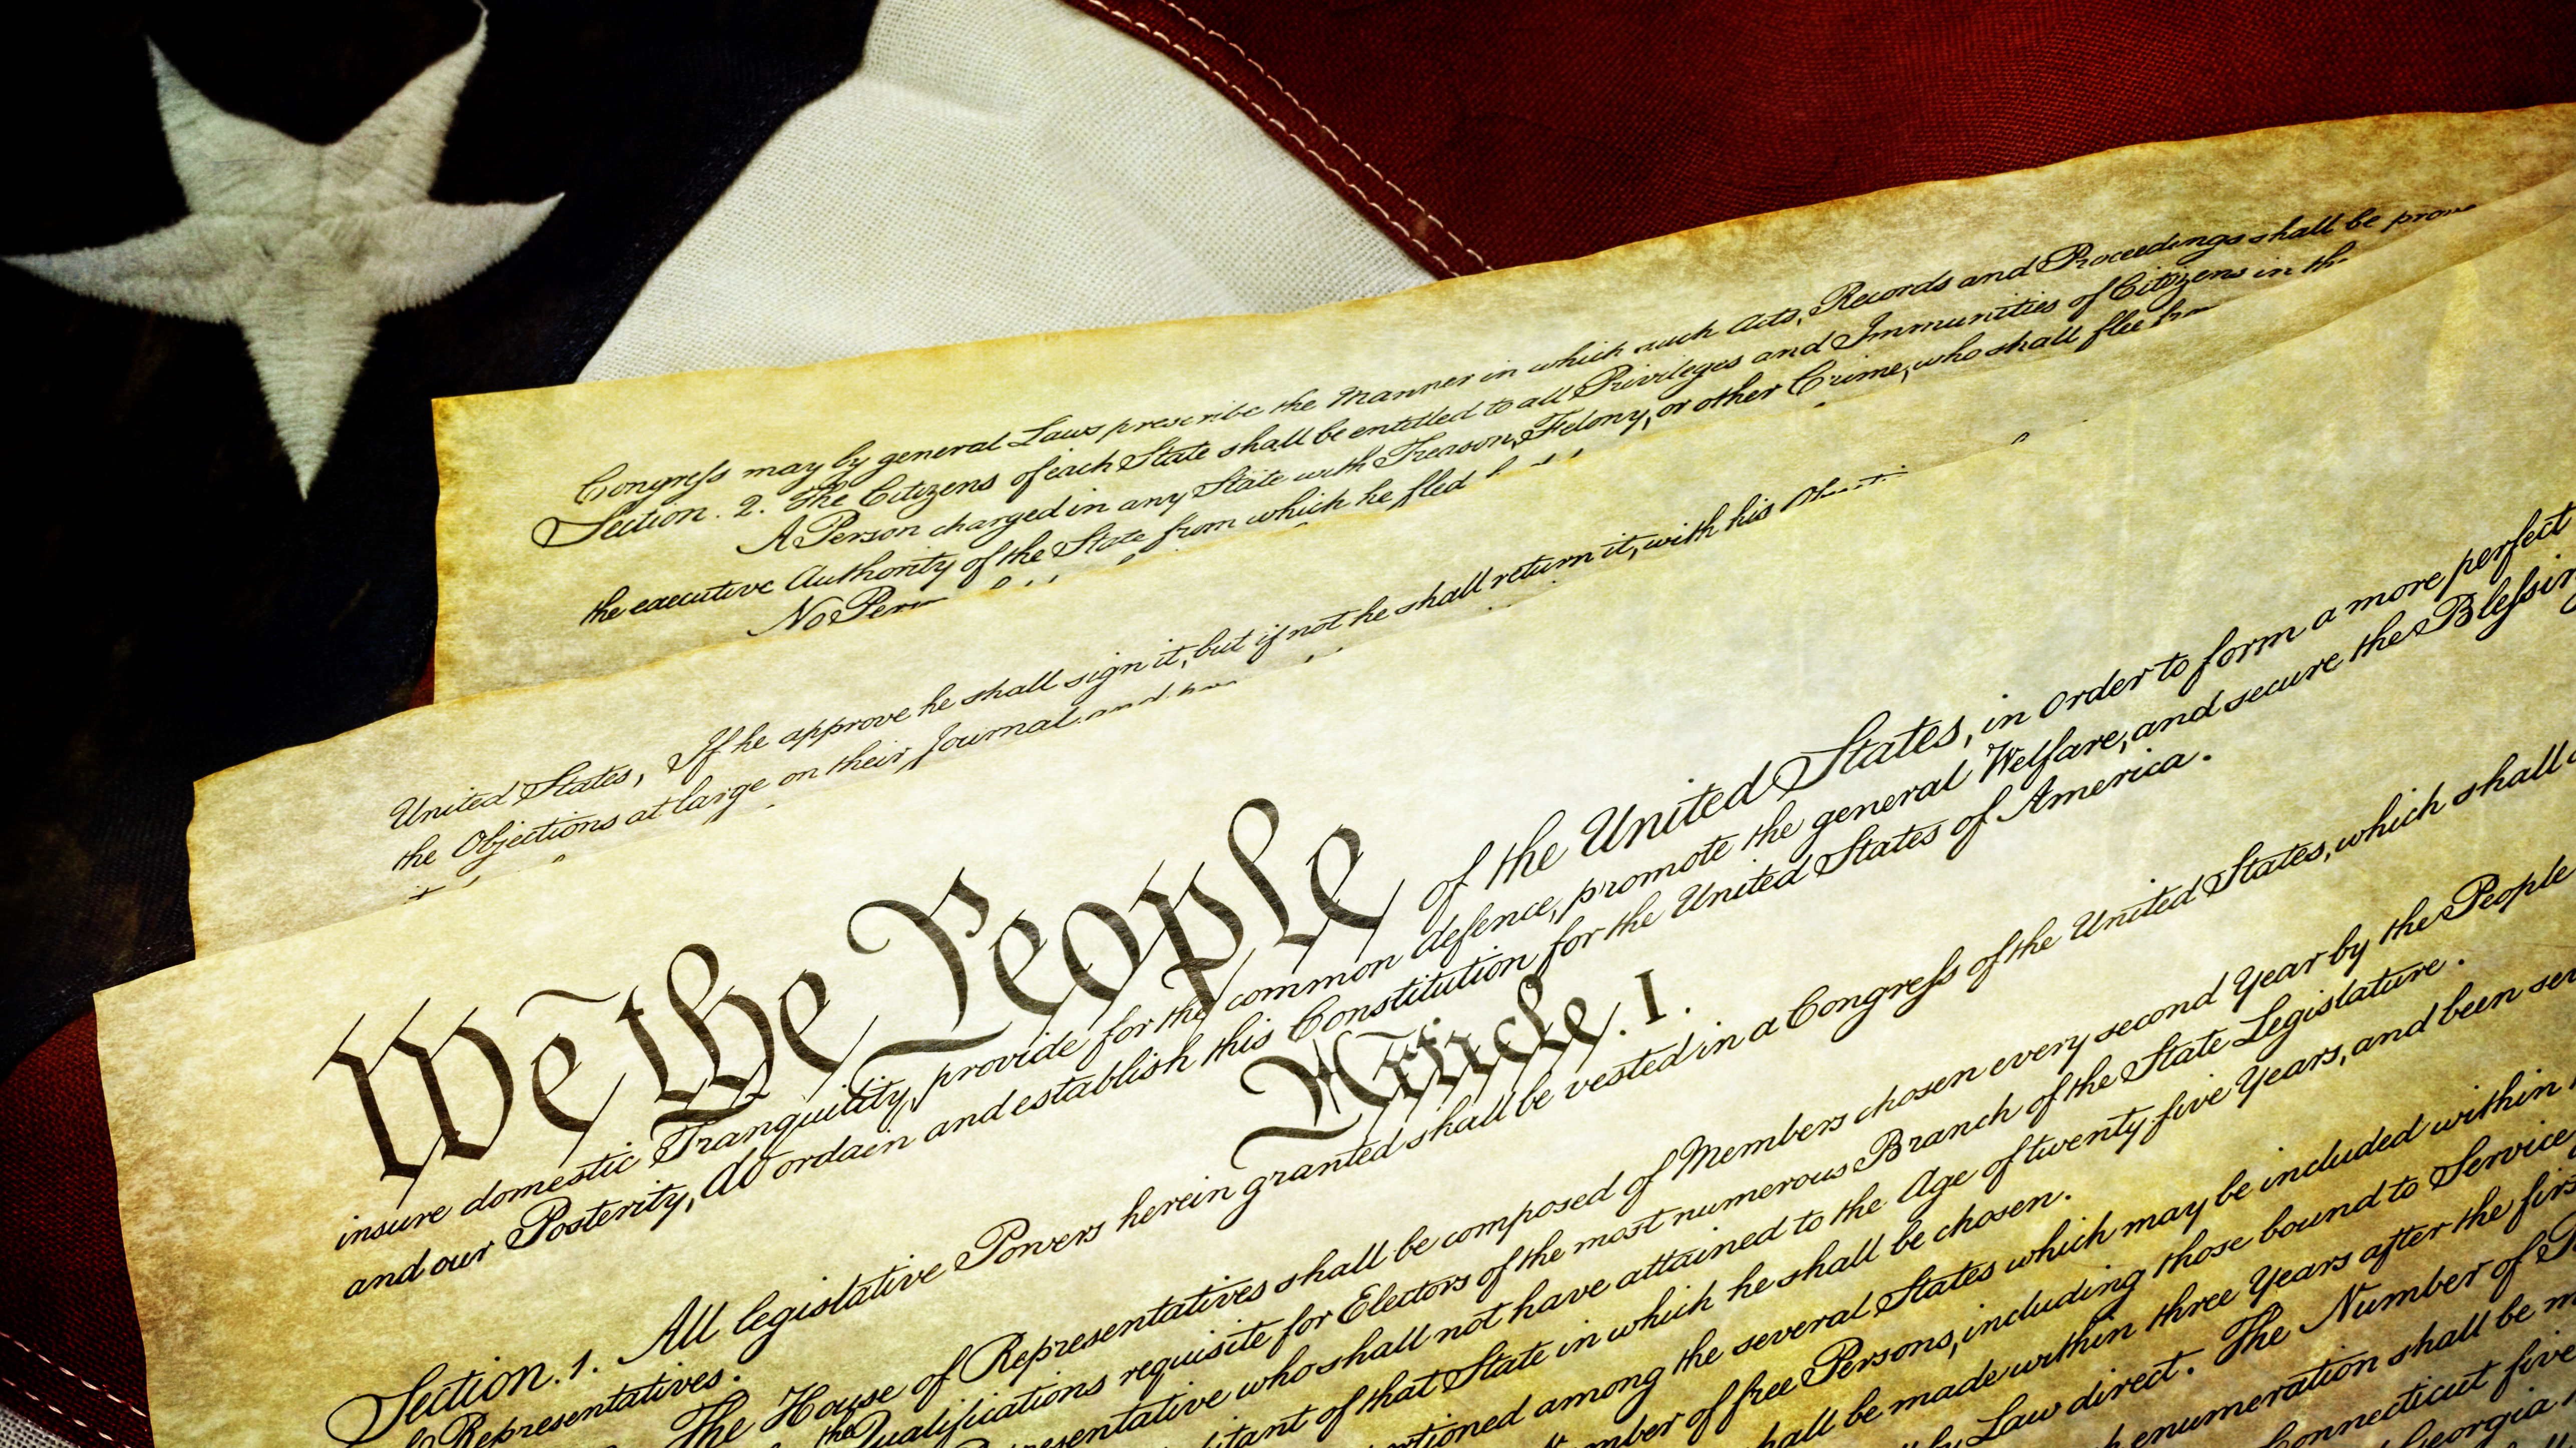 Congress may by general Laws prescribe the Manner in which such Acts, Records and Proceedings shall be
Section. 2. The Citizens of each State shall be entitled to all Privileges and Immunities of Citizens in
A Person charged in any State with Treason, Felony, or other Crime, who shall flee
the executive Authority of the State from which he fled
No
United States, If he approve he shall sign it, but if not he shall return it, with his
the Objections at large on their Journal and
We the People of the United States, in Order to form a more perfect
insure domestic Tranquility, provide for the common defence, promote the general Welfare, and secure the
and our Posterity, do ordain and establish this Constitution for the United States of America.
Article. I.
Section. 1. All legislative Powers herein granted shall be vested in a Congress of the United States, which shall
Representatives.
The House of Representatives shall be composed of Members chosen every second Year by the People
the Qualifications requisite for Electors of the most numerous Branch of the State Legislature.
who shall not have attained to the Age of twenty five Years, and been
of that State in which he shall be chosen.
among the several States which may be included within
of free Persons, including those bound to Service
shall be made within three Years after the
Law direct. The Number of
enumeration shall be
Connecticut five
Georgia